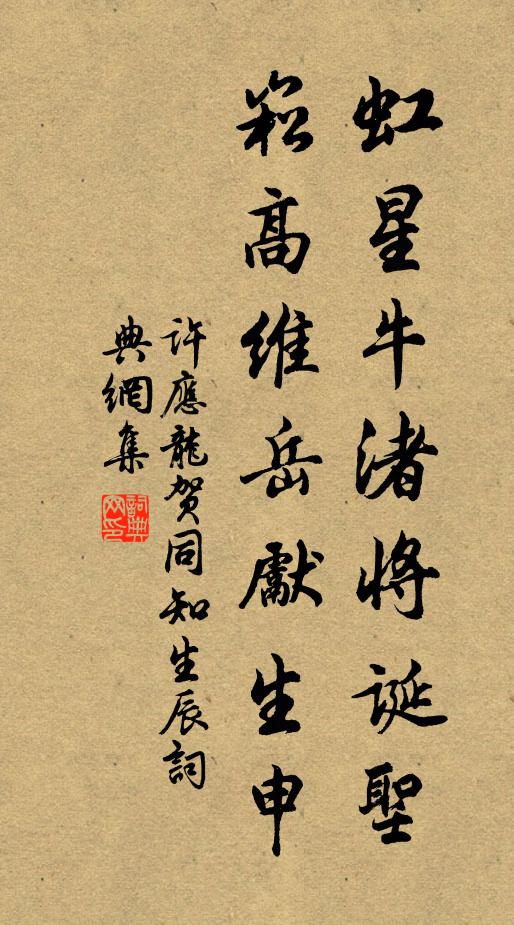 虹星牛渚將誕聖
崧高維岳獻生申
許應龍賀同知生辰詞
典網集
詞典
网印